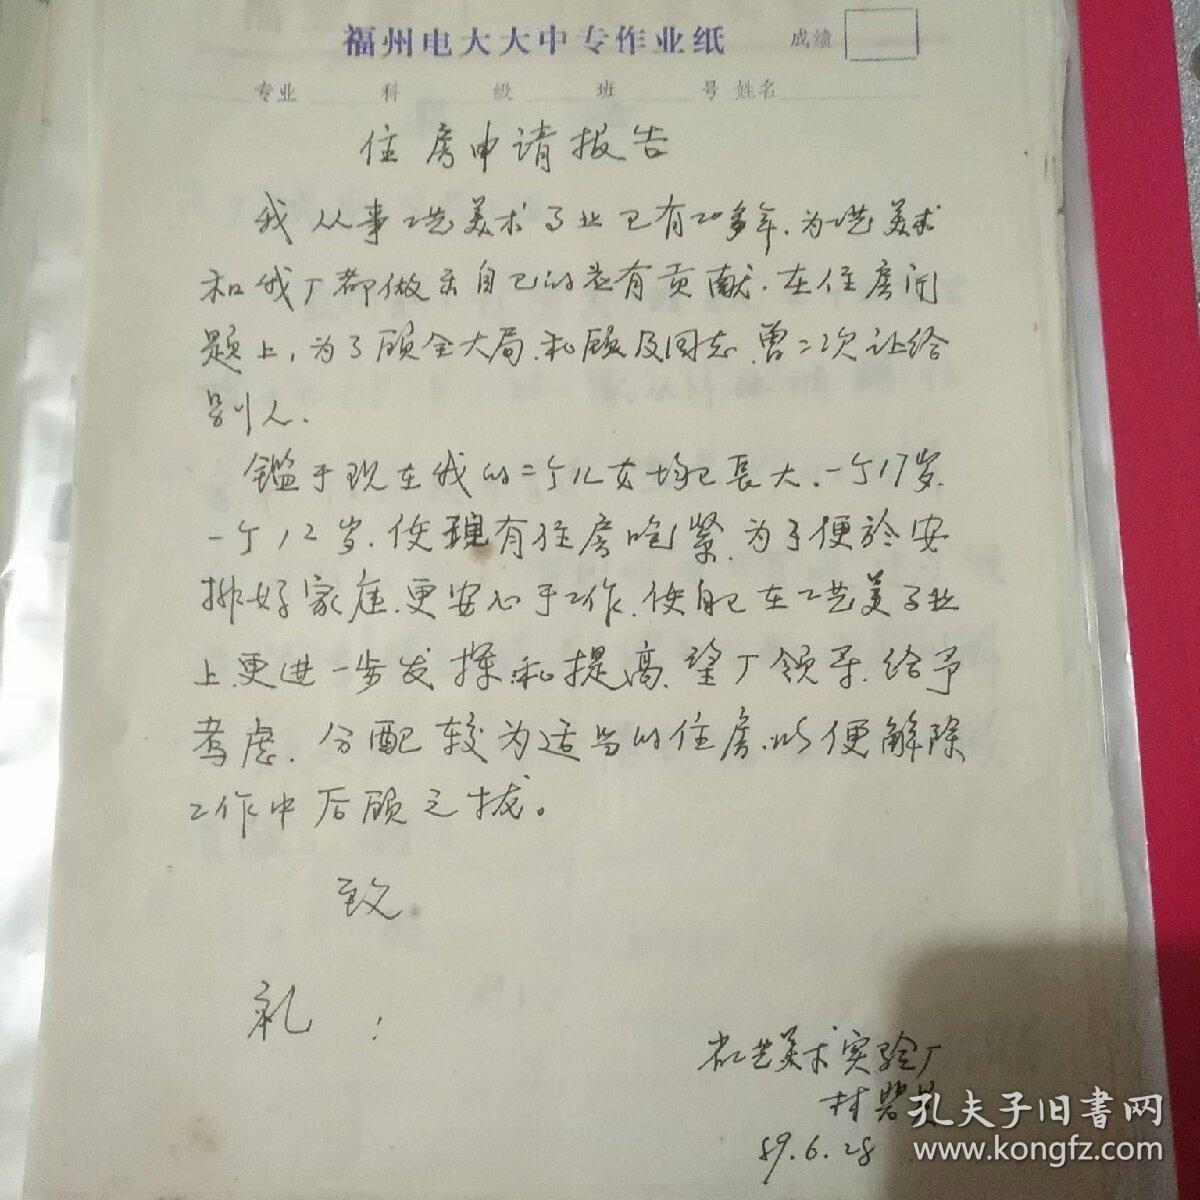 福州电大大中专作业纸 成绩
专业 科 级 班 号 姓名
住房申请报告
我从事工艺美术事业已有20多年.为工艺美术
和我厂都做出自己的应有贡献.在住房问
题上,为了顾全大局.和顾及同志.曾二次让给
别人.
鑑于现在我的二个儿女均已長大.一个17岁.
一个12岁.使现有住房吃紧.为了便於安
排好家庭.更安心于工作.使自己在工艺美事业
上更进一步发挥和提高.望厂领导.给予
考虑.分配较为适当的住房.以便解除
工作中后顾之忧。
致
礼!
省工艺美术实验厂
林碧
89.6.28
孔夫子旧书网
www.kongfz.com